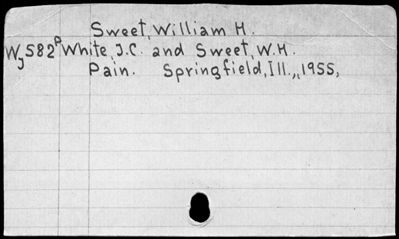 Sweet, William H.
Wj582p White, J.C. and Sweet, W.H.
Pain. Springfield, Ill., 1955,